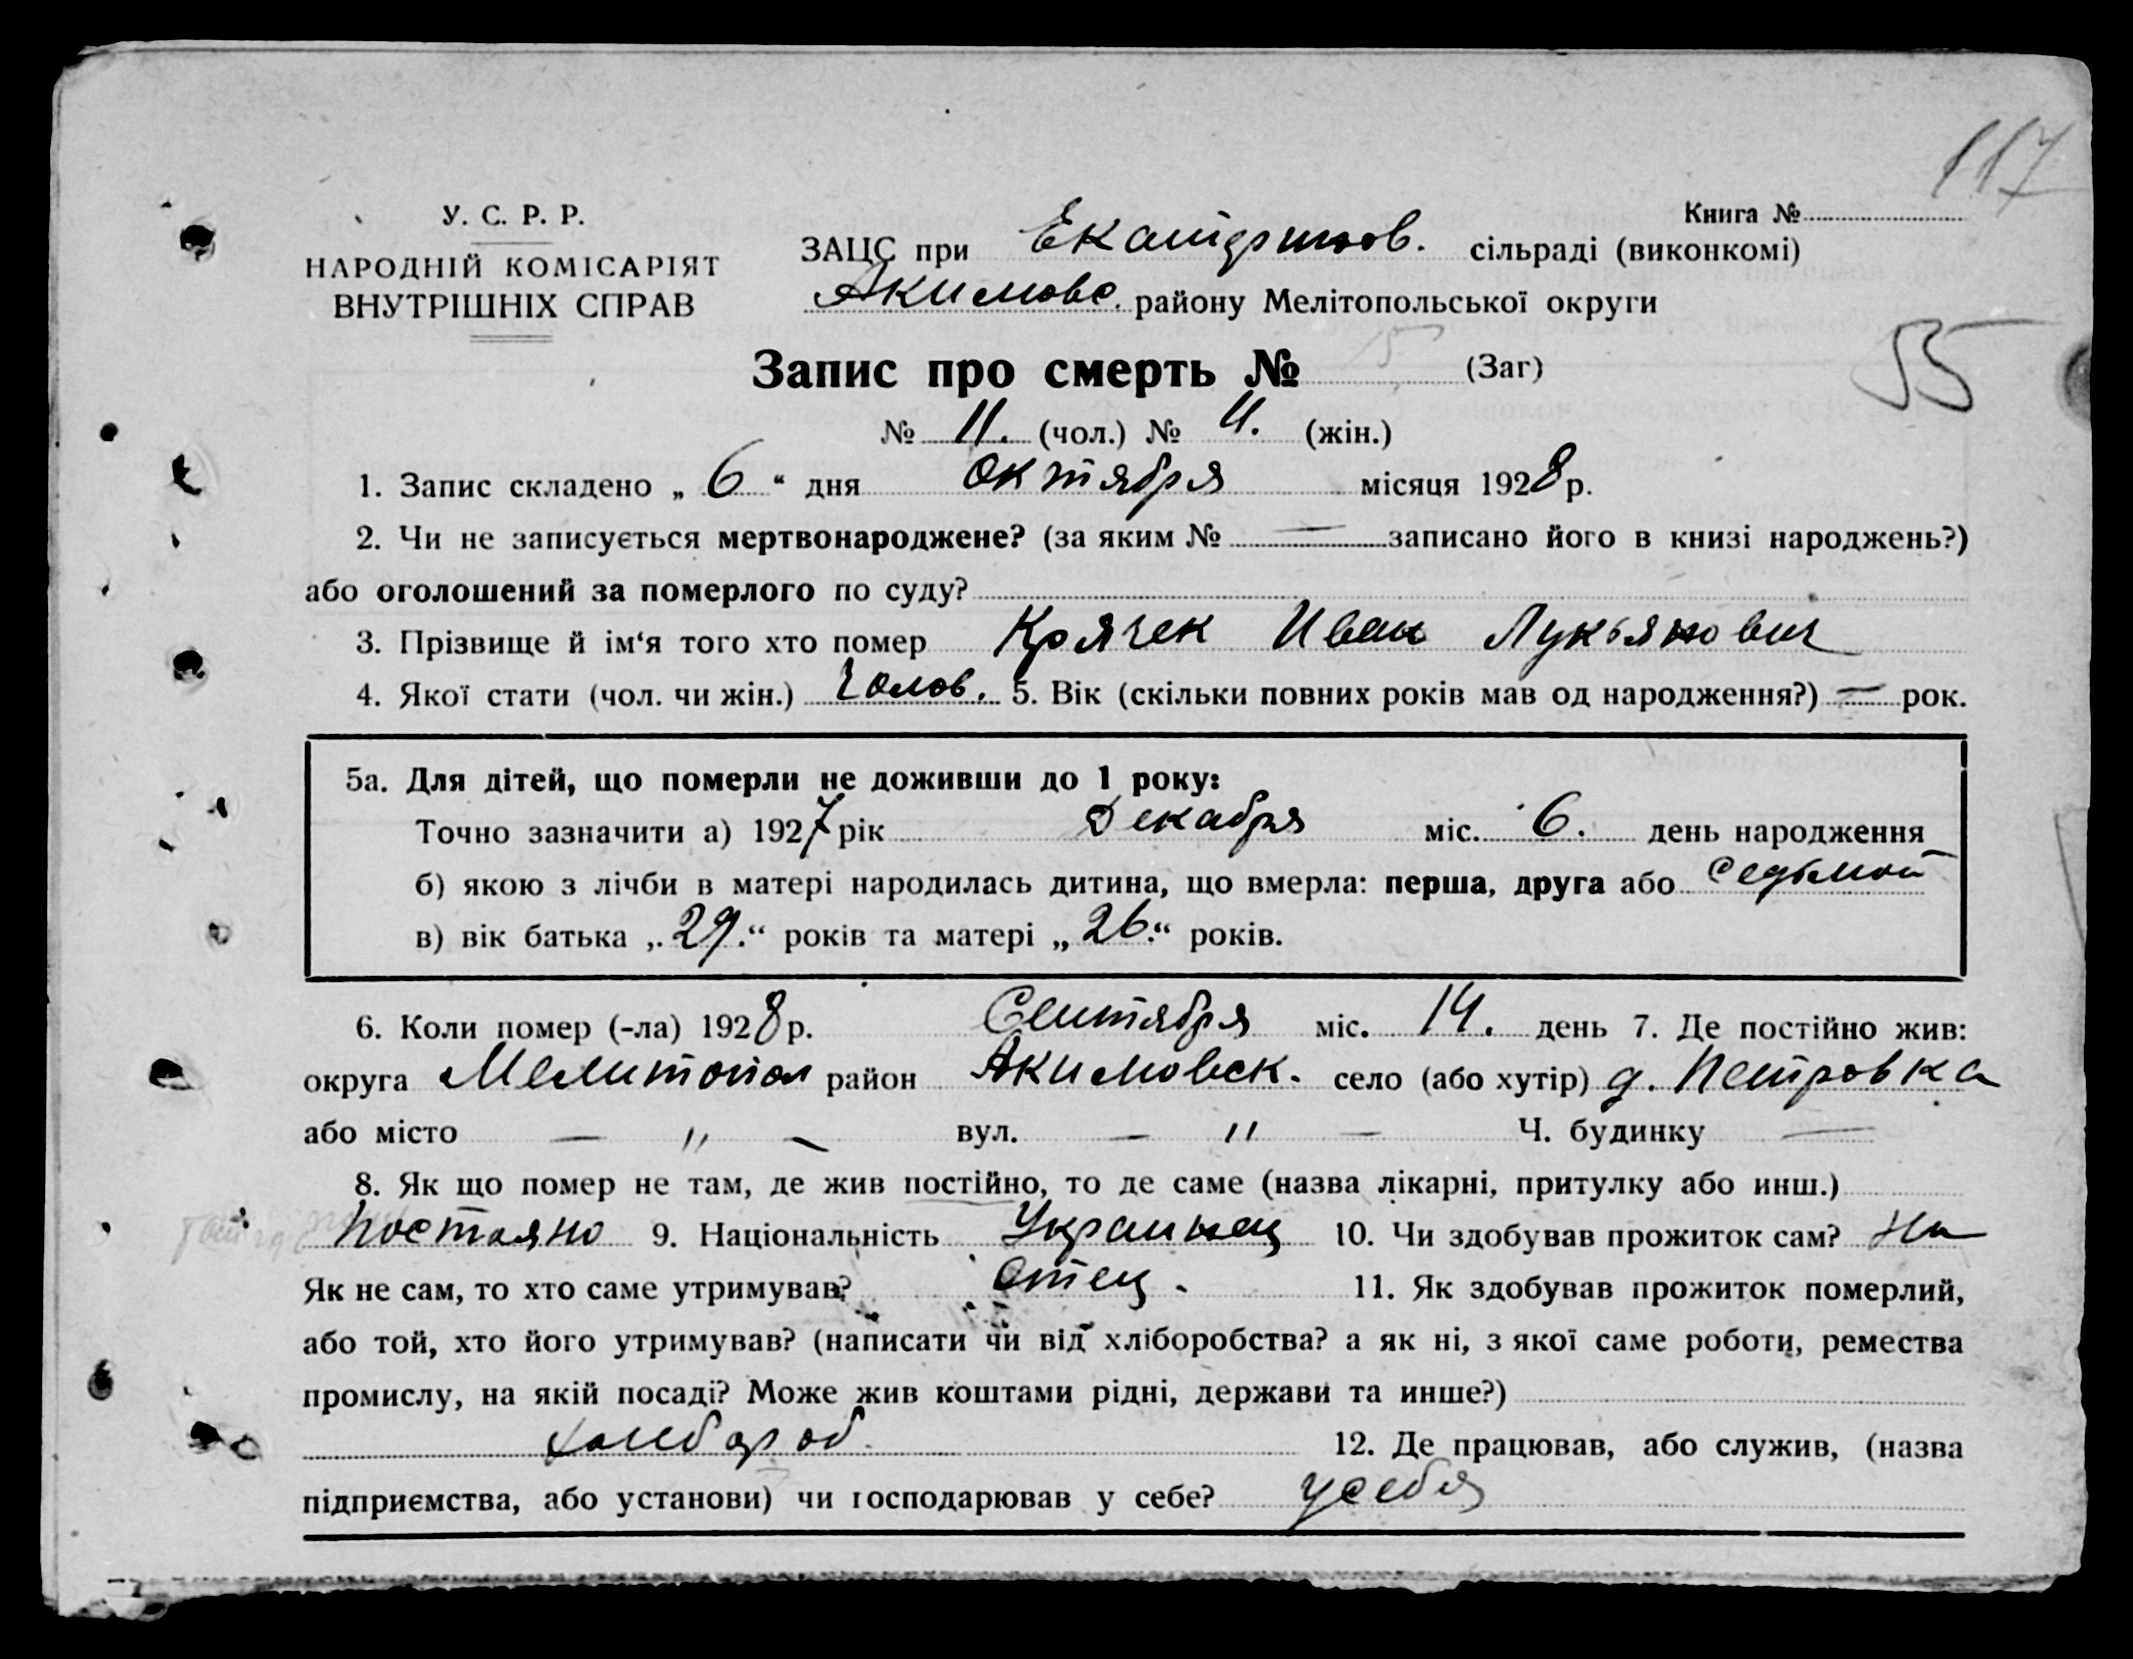 117
У. С. Р. Р.
НАРОДНІЙ КОМІСАРІЯТ
ВНУТРІШНІХ СПРАВ
Книга №
ЗАЦС при сільраді (виконкомі)
Акимовс. району Мелітопольської округи
55
Запис про смерть № 15 (Заг)
№ 11. (чол.) № 4. (жін.)
1. Запис складено „ 6 “ дня октября місяця 1928 р.
2. Чи не записується мертвонароджене? (за яким № — записано його в книзі народжень?)
або оголошений за померлого по суду?
3. Прізвище й ім‘я того хто помер Крячек Иван Лукьянович
4. Якої стати (чол. чи жін.) Чолов. 5. Вік (скільки повних років мав од народження?) — рок.
5а. Для дітей, що померли не доживши до 1 року:
Точно зазначити а) 1927 рік Декабря міс. 6. день народження
б) якою з лічби в матері народилась дитина, що вмерла: перша, друга або седьмой
в) вік батька „ 29. “ років та матері „ 26. “ років.
6. Коли помер (-ла) 1928 р. Сентября міс. 14. день 7. Де постійно жив:
округа Мелитопол район Акимовск. село (або хутір) д. Петровка
або місто — „ — вул. — „ — Ч. будинку —
8. Як що помер не там, де жив постійно, то де саме (назва лікарні, притулку або инш.)
постояно 9. Національність Украинец 10. Чи здобував прожиток сам?
Як не сам, то хто саме утримував? отец. 11. Як здобував прожиток померлий,
або той, хто його утримував? (написати чи від хліборобства? а як ні, з якої саме роботи, ремества
промислу, на якій посаді? Може жив коштами рідні, держави та инше?)
12. Де працював, або служив, (назва
підприємства, або установи) чи господарював у себе? у себя